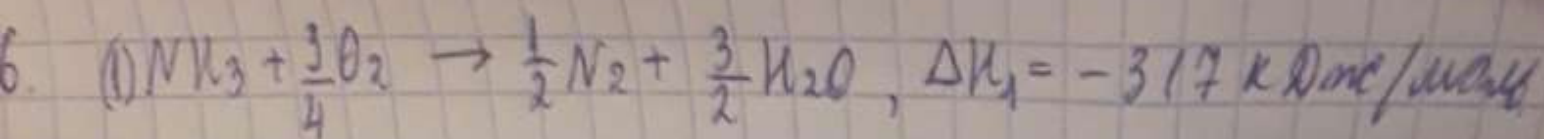 6. (1) NH₃ + 3/4 O₂ → 1/2 N₂ + 3/2 H₂O, ΔH₁ = -317 кДж/моль